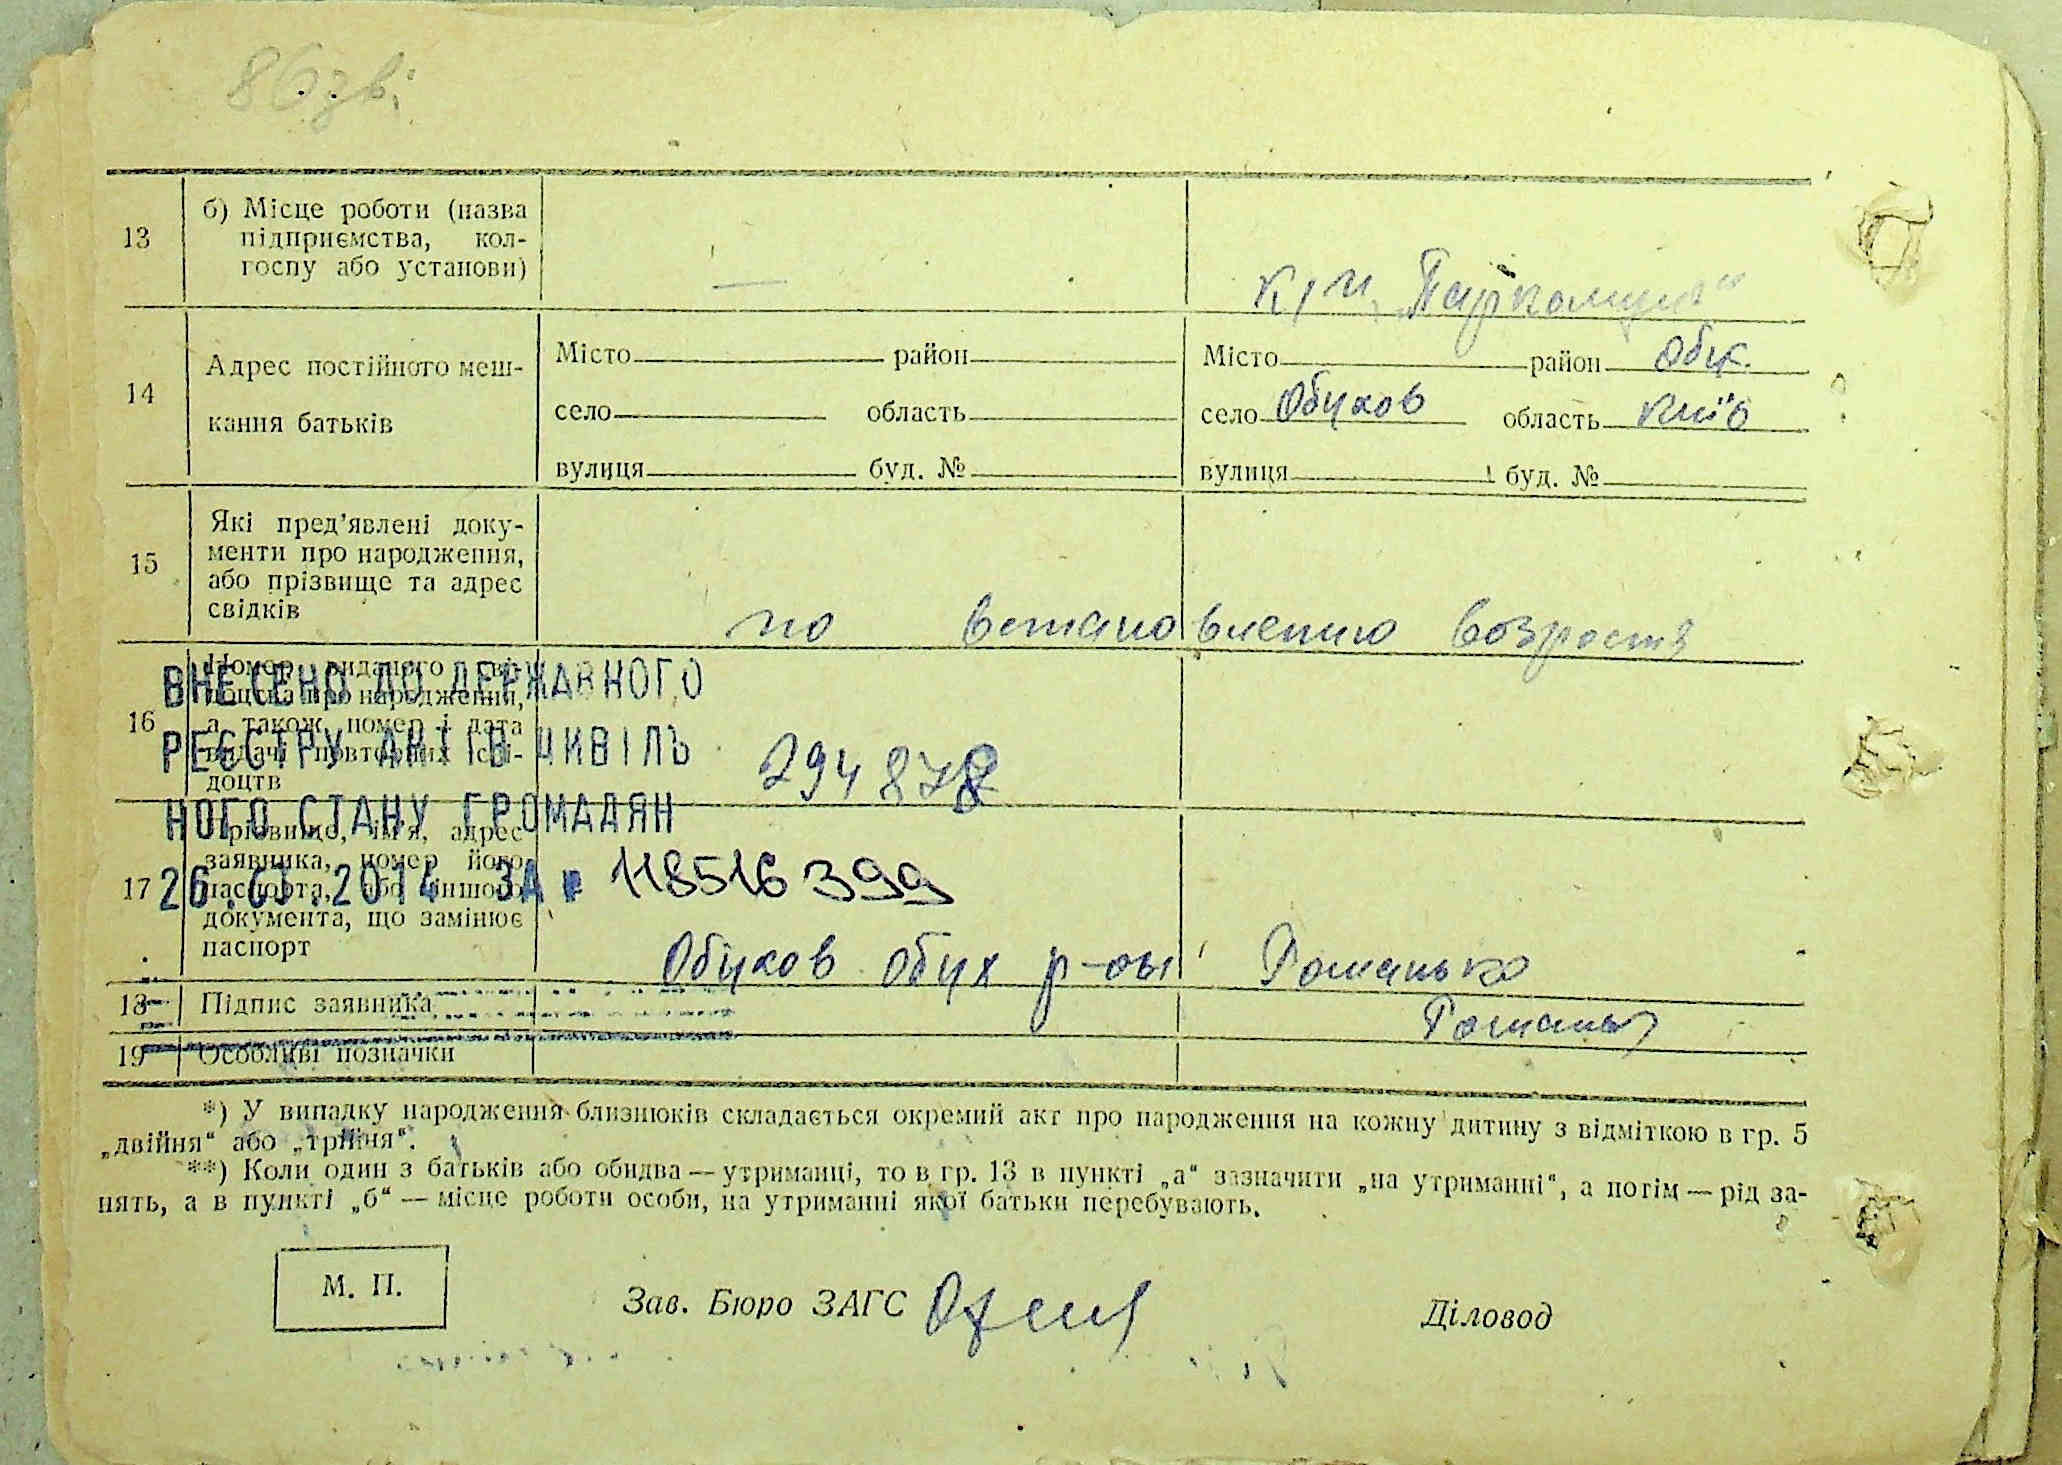 86 зві
13
б) Місце роботи (назва
підприємства, кол-
госпу або установи)
—
к/г „Паркомуна“
14
Адрес постійного меш-
кання батьків
Місто район
село область
вулиця буд. №
Місто район Обух.
село Обухов область Київ
вулиця буд. №
15
Які пред’явлені доку-
менти про народження,
або прізвище та адрес
свідків
по встановлению возроста
16
Номер виданого сві-
доцтва про народження,
а також номер і дата
видачі повторних сві-
доцтв
294878
ВНЕСЕНО ДО ДЕРЖАВНОГО
РЕЄСТРУ АКТІВ ЦИВІЛЬ
НОГО СТАНУ ГРОМАДЯН
26. .2014 ЗА № 118516399
17
Прізвище, ім’я, адрес
заявника, номер його
паспорта, або іншого
документа, що замінює
паспорт
Обухов обух р-он Романько
18
Підпис заявника
19
Особливі позначки
*) У випадку народження близнюків складається окремий акт про народження на кожну дитину з відміткою в гр. 5
„двійня“ або „трійня“.
**) Коли один з батьків або обидва — утриманці, то в гр. 13 в пункті „а“ зазначити „на утриманні“, а потім — рід за-
нять, а в пункті „б“ — місце роботи особи, на утриманні якої батьки перебувають.
М. П.
Зав. Бюро ЗАГС
Діловод